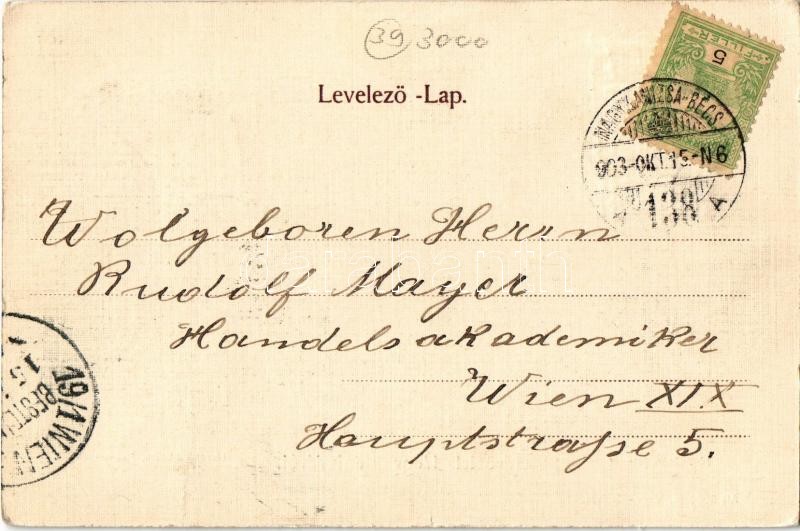 39 3000
5
FILLER
Levelező -Lap.
NAGYKANIZSA-BÉCS
903-OKT.15-N6
138
A
Wolgeboren Herrn
Rudolf Mayer
Handelsakademiker
Wien XIX
Hauptstraße 5.
19/1 WIEN
BESTELLT
15